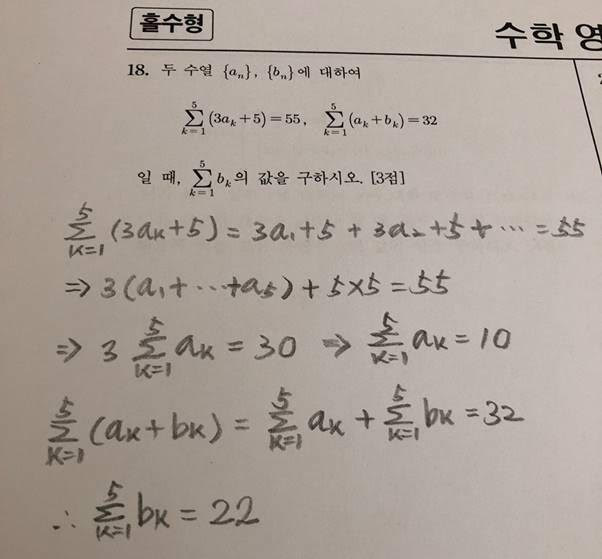 홀수형
수학 영
18. 두 수열 {aₙ}, {bₙ}에 대하여
∑_{k=1}^{5} (3aₖ+5)=55, ∑_{k=1}^{5} (aₖ+bₖ)=32
일 때, ∑_{k=1}^{5} bₖ의 값을 구하시오. [3점]
∑_{k=1}^{5} (3aₖ+5) = 3a₁+5 + 3a₂+5 + ⋯ = 55
⇒ 3(a₁+⋯+a₅) + 5×5 = 55
⇒ 3 ∑_{k=1}^{5} aₖ = 30 ⇒ ∑_{k=1}^{5} aₖ = 10
∑_{k=1}^{5} (aₖ+bₖ) = ∑_{k=1}^{5} aₖ + ∑_{k=1}^{5} bₖ = 32
∴ ∑_{k=1}^{5} bₖ = 22